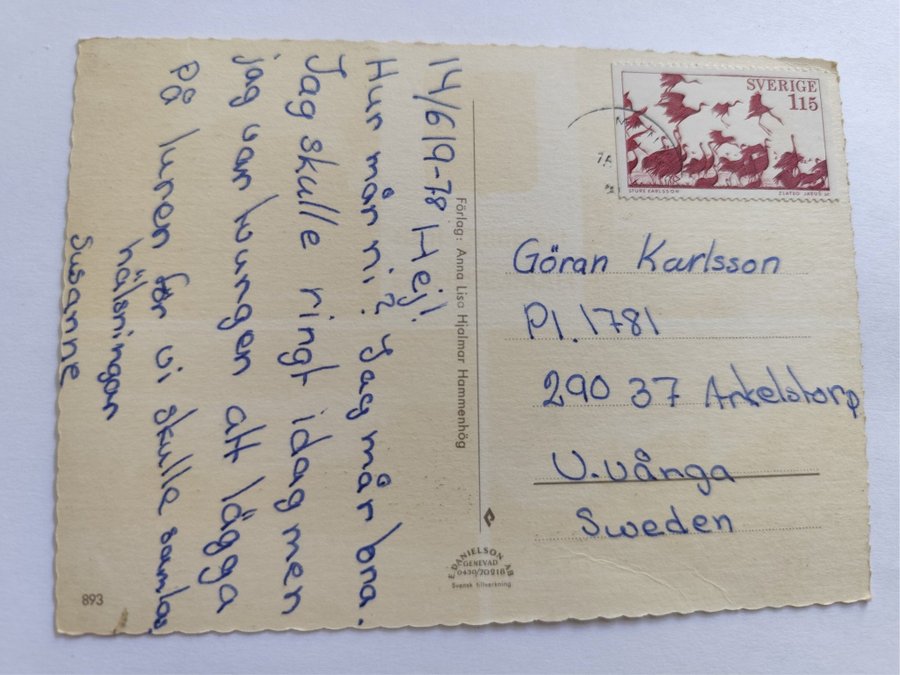 14/6 19-78 Hej!
Hur mår ni? Jag mår bra.
Jag skulle ringt idag men
jag var tvungen att lägga
på luren för vi skulle samlas.
hälsningar
Susanne
Förlag: Anna Lisa Hjalmar Hammenhög
SVERIGE
115
STURE KARLSSON
ZLATKO JAKUS SC
Göran Karlsson
Pl. 1781
290 37 Arkelstorp
V. Vånga
Sweden
E. DANIELSON AB
GENEVAD
0430/70216
Svensk tillverkning
893